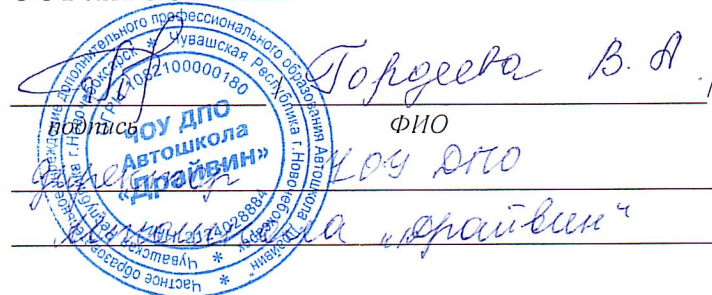 Гордеева В. А.
подпись ФИО
директор ЧОУ ДПО
Автошкола „Драйвин“
Частное образовательное учреждение дополнительного профессионального образования Автошкола "Драйвин"
Чувашская Республика г.Новочебоксарск
ОГРН 1062100000180
ЧОУ ДПО
Автошкола
«Драйвин»
ИНН 2124028884